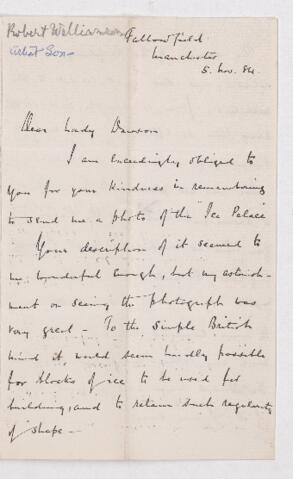 Robert Williamson
Artist Son
Fallowfield
Manchester
5. Nov. 84.
Dear Lady Dawson
I am exceedingly obliged to
you for your kindness in remembering
to send me a photo of the "Ice Palace"
Your description of it seemed to
me wonderful enough, but my astonish-
ment on seeing the photograph was
very great - To the simple British
mind it would seem hardly possible
for blocks of ice to be used for
building, and to retain such regularity
of shape -